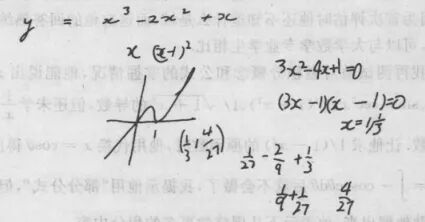 y = x³ - 2x² + x
x (x-1)²
3x² - 4x + 1 = 0
(3x - 1)(x - 1) = 0
x = 1 1/3
(1/3, 4/27)
1/27 - 2/9 + 1/3
1/9 + 1/27
4/27